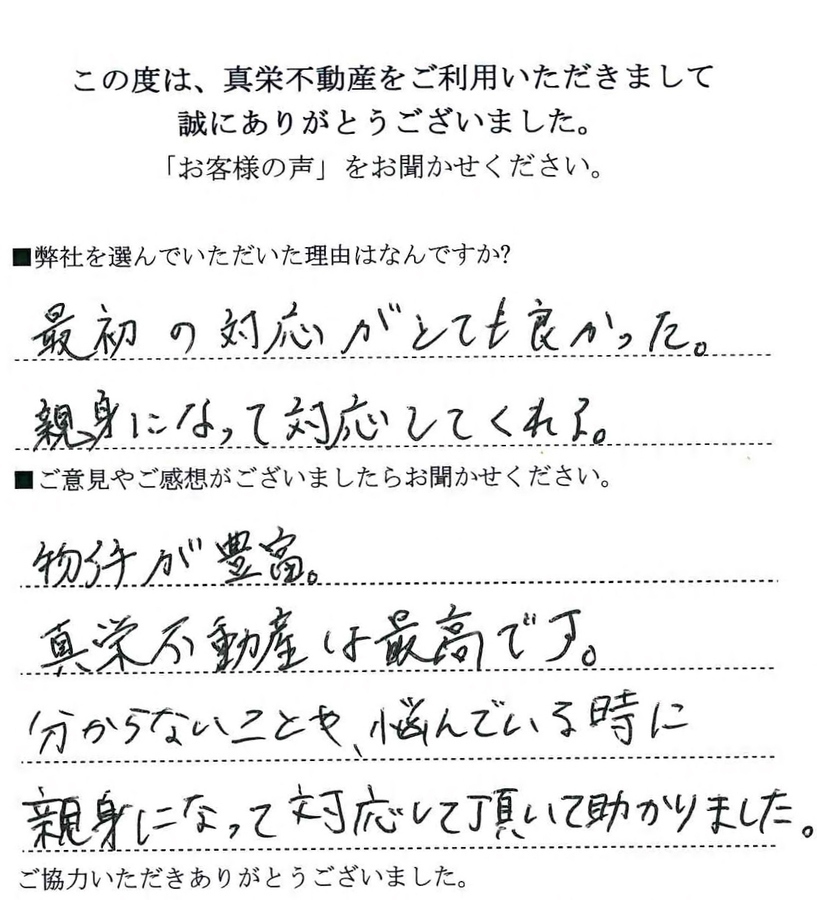 この度は、真栄不動産をご利用いただきまして
誠にありがとうございました。
「お客様の声」をお聞かせください。
■弊社を選んでいただいた理由はなんですか?
最初の対応がとても良かった。
親身になって対応してくれる。
■ご意見やご感想がございましたらお聞かせください。
物件が豊富。
真栄不動産は最高です。
分からないことや、悩んでいる時に
親身になって対応して頂いて助かりました。
ご協力いただきありがとうございました。